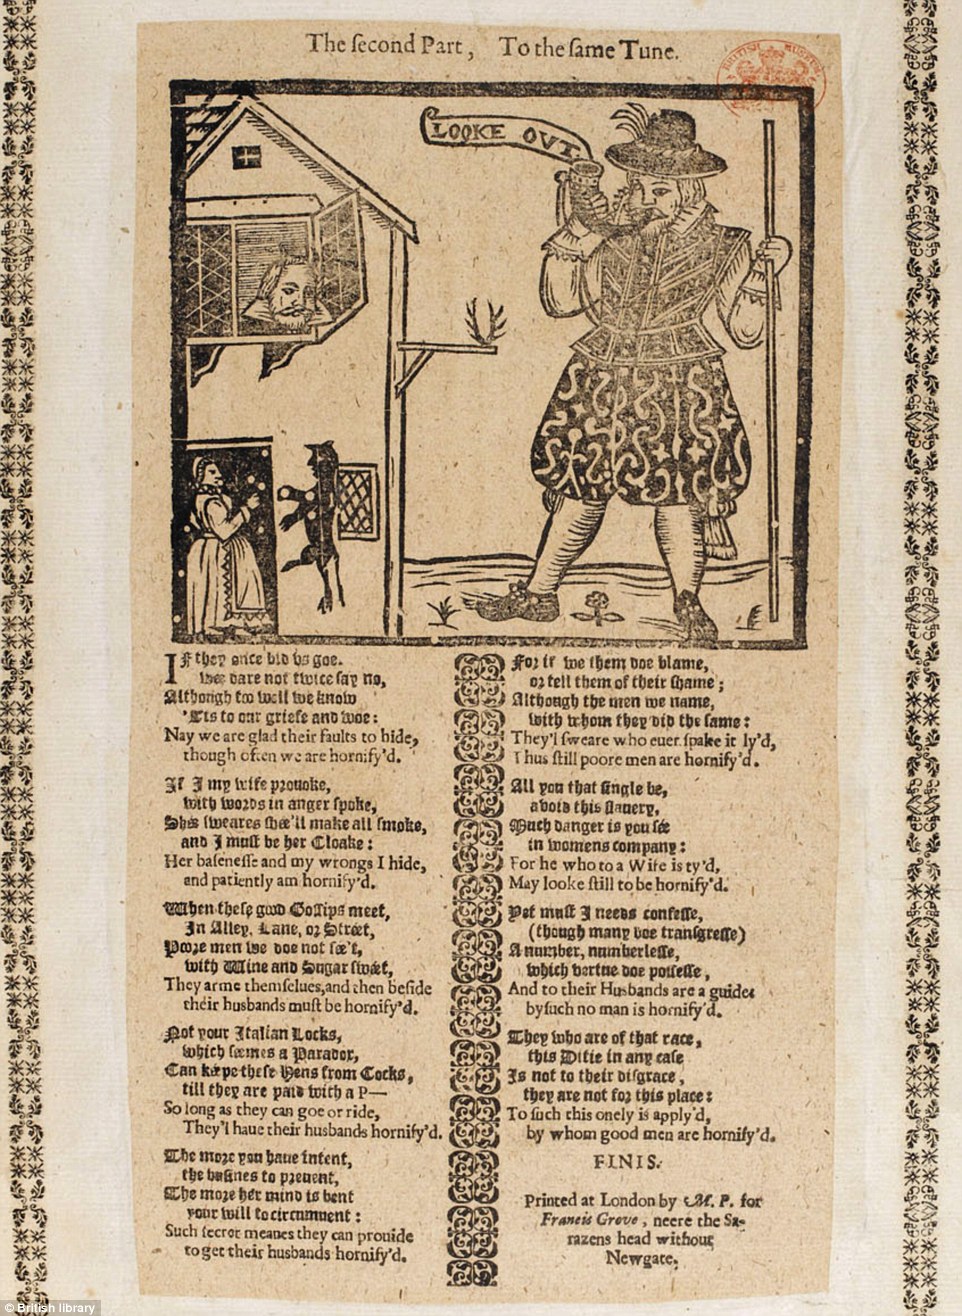 The ſecond Part, To the ſame Tune.
BRITISH MUSEUM
LOOKE OVT
If they once bid vs goe.
wee dare not twice ſay no,
Although too well we know
'Tis to our griefe and woe:
Nay we are glad their faults to hide,
though often we are hornify'd.
If I my wife prouoke,
with words in anger ſpoke,
Shee ſweares ſhee'll make all ſmoke,
and I muſt be her Cloake:
Her baſeneſſe and my wrongs I hide,
and patiently am hornify'd.
When theſe good Goſſips meet,
In Alley, Lane, or Street,
Poore men we doe not ſee't,
with Wine and Sugar ſweet,
They arme themſelues, and then beſide
their husbands muſt be hornify'd.
Not your Italian Locks,
which ſeemes a Paradox,
Can keepe theſe Hens from Cocks,
till they are paid with a P—
So long as they can goe or ride,
They'l haue their husbands hornify'd.
The more you haue intent,
the buſines to preuent,
The more her mind is bent
your will to circumuent:
Such ſecret meanes they can prouide
to get their husbands hornify'd.
For if we them doe blame,
or tell them of their ſhame;
Although the men we name,
with whom they did the ſame:
They'l ſweare who euer ſpake it ly'd,
Thus ſtill poore men are hornify'd.
All you that ſingle be,
avoid this ſlauery,
Much danger is you ſee
in womens company:
For he who to a Wife is ty'd,
May looke ſtill to be hornify'd.
Yet muſt I needs confeſſe,
(though many doe tranſgreſſe)
A number, numberleſſe,
which vertue doe poſſeſſe,
And to their Husbands are a guide:
by ſuch no man is hornify'd.
They who are of that race,
this Ditie in any caſe
Is not to their diſgrace,
they are not for this place:
To ſuch this onely is apply'd,
by whom good men are hornify'd.
FINIS.
Printed at London by M. P. for
Francis Grove, neere the Sa-
razens head without
Newgate.
© British library